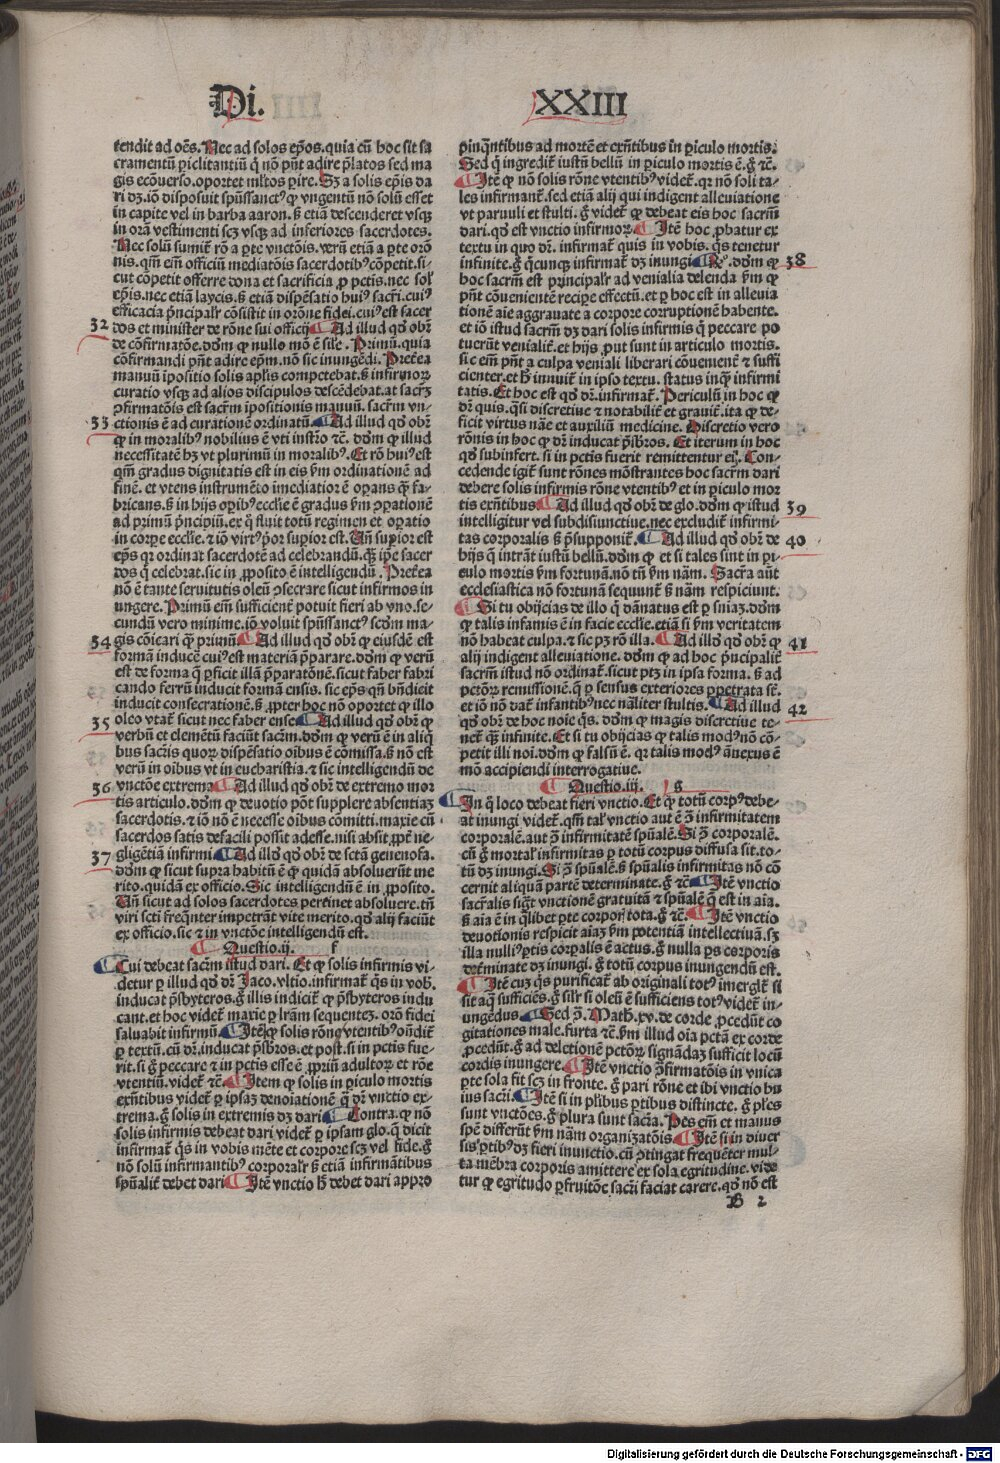 Di. XXIII
tendit ad oēs. Nec ad solos ep̄os. quia cū hoc sit sa
cramentū ꝑiclitantiū q̄ nō pn̄t adire p̄latos sed ma
gis ecōuerso. oportet ml̄tos ꝑire. Sꝫ a solis ep̄is da
ri dꝫ. iō disposuit spūssanctꝰ ꝙ vngentū nō solū esset
in capite vel in barba aaron. s̄ etiā descenderet vsqꝫ
in orā vestimenti scꝫ vsqꝫ ad inferiores sacerdotes.
Nec solū sumit̄ rō a ꝑte vnctōis. verū etiā a ꝑte orō
nis. qm̄ em̄ officiū mediatōis sacerdotibꝰ cōpetit. si-
cut cōpetit offerre dona et sacrificia ꝓ pctis. nec sol̄
ep̄is. nec etiā laycis. s̄ etiā dispēsatio huiꝰ sacr̄i. cuiꝰ
efficacia pn̄cipalr̄ cōsistit in orōne fidei. cuiꝰ est sacer
32 dos et minister de rōne sui officij ¶ Ad illud qd̓ obr̄
de cōfirmatōe. dōm ꝙ nullo mō ē sil̄e. Primū. quia
cōfirmandi pn̄t adire ep̄m. nō sic inungēdi. Pret̄ea
manuū īpositio solis apl̄is competebat. s̄ infirmoꝝ
curatio vsqꝫ ad alios discipulos descēdebat. at sacrꝫ
ꝯfirmatōis est sacrm̄ īpositionis manuū. sacrm̄ vn-
33 ctionis ē ad curationē ordinatū. ¶ Ad illud qd̓ obr̄
ꝙ in moralibꝰ nobilius ē vti instrō ⁊c̄. dōm ꝙ illud
necessitatē hꝫ vt plurimū in moralibꝰ. Et rō huiꝰ est
qm̄ gradus dignitatis est in eis ẜm ordinationē ad
finē. et vtens instrumēto imediatior ē oꝑans q̄ fa-
bricans. s̄ in hijs oꝑibꝰ eccl̄ie ē gradus ẜm ꝓꝑationē
ad primū pn̄cipiū. ex q̊ fluit totū regimen et oꝑatio
in corꝑe eccl̄ie. ⁊ iō virtꝰ ꝑor suꝑior est. Un̄ suꝑior est
ep̄s qꝛ ordinat sacerdotē ad celebrandū. qꝫ̄ ip̄e sacer
dos q̄ celebrat. sic in ꝓposito ē intelligendū. Pret̄ea
nō ē tante seruitutis oleū ꝯsecrare sicut infirmos in
ungere. Primū em̄ sufficient̄ potuit fieri ab vno. se-
cundū vero minime. iō voluit spūssanctꝰ scdm̄ ma-
34 gis cōicari q̄ primū ¶ Ad illud qd̓ obr̄ ꝙ eiusdē est
formā inducē cuiꝰ est materiā pꝑarare. dōm ꝙ verū
est de forma q̄ ꝑficit illā p̄ꝑaratōnē. sicut faber fabri
cando ferrū inducit formā ensis. sic ep̄s qn̄ bn̄dicit
inducit consecrationē. s̄ ꝓpter hoc nō oportet ꝙ illo
35 oleo vtat̄ sicut nec faber ense ¶ Ad illud qd̓ obr̄ ꝙ
verbū et elemētū faciūt sacrm̄. dōm ꝙ verū ē in aliq̊
bus sacr̄is quoꝝ dispēsatio oībus ē cōmissa. s̄ nō est
verū in oībus vt in eucharistia. ⁊ sic intelligendū de
36 vnctōe extrema ¶ Ad illud qd̓ obr̄ de extremo mor
tis articulo. dōm ꝙ deuotio pōt supplere absentiaꝫ
sacerdotis. ⁊ iō nō ē necesse oībus cōmitti. maxīe cū
sacerdos satis de facili possit adesse. nisi absit ꝓpt̄ ne-
37 gligētiā infirmi ¶ Ad illd̓ qd̓ obr̄ de scta genenofa.
dōm ꝙ sicut supra habitū ē ꝙ quidā absoluerūt me
rito. quidā ex officio. Sic intelligendū ē in ꝓposito.
Un̄ sicut ad solos sacerdotes pertinet absoluere. tn̄
viri scti freqn̄ter impetrāt vite merito. qd̓ alij faciūt
ex officio. sic ⁊ in vnctōe intelligendū est.
¶ Questio. ij. f
¶ Cui debeat sacrm̄ istud dari. Et ꝙ solis infirmis vi-
detur ꝑ illud qd̓ dr̄ Jaco. vltio. infirmat̄ q̊s in vob̄.
inducat p̄sbyteros. g̊ illis indicit̄ ꝙ p̄sbyteros indu
cant. et hoc videt̄ maxīe ꝑ l̄ram sequentez. orō fidei
saluabit infirmū ¶ Itē ꝙ solis rōne vtentibꝰ oñdit̄
ꝑ textū. cū dr̄. inducat p̄sbr̄os. et post. si in pctis fue-
rit. si g̊ peccare ⁊ in pctis esse ē ꝓpriū adultoꝝ et rōe
vtentiū. videt̄ ⁊c̄ ¶ Item ꝙ solis in ꝑiculo mortis
exn̄tibus videt̄ ꝑ ipsaꝫ denoīationē q̄ dr̄ vnctio ex-
trema. g̊ solis in extremis dꝫ dari ¶ Contra. ꝙ nō
solis infirmis debeat dari videt̄ ꝑ ipsam glo. q̄ dicit
infirmat̄ q̊s in vobis mēte et corpore scꝫ vel fide. g̊
nō solū infirmantibꝰ corporalr̄ s̄ etiā infirmātibus
spūalit̄ debet dari ¶ Itē vnctio h̄ debet dari appro
pinq̄ntibus ad mortē et exn̄tibus in ꝑiculo mortis.
Sed q̄ ingredit̄ iustū bellū in ꝑiculo mortis ē. g̊ ⁊c̄.
¶ Itē ꝙ nō solis rōne vtentibꝰ videt̄. qꝛ nō soli ta-
les infirmant̄. sed etiā alij qui indigent alleuiatione
vt paruuli et stulti. g̊ videt̄ ꝙ debeat eis hoc sacrm̄
dari. qd̓ est vnctio infirmoꝝ. ¶ Itē hoc ꝓbatur ex
textu in quo dr̄. infirmat̄ quis in vobis. q̊s tenetur
infinite. g̊ q̄cunqꝫ infirmat̄ dꝫ inungi ¶ Rn̄. dōm ꝙ 38
hoc sacrm̄ est principalr̄ ad venialia delenda ẜm ꝙ
pn̄t cōuenienter recipe effectū. et ꝑ hoc est in alleuia
tionē aīe aggrauate a corpore corruptionē habente.
et iō istud sacrm̄ dꝫ dari solis infirmis q̄ peccare po
tuerūt venialit̄. et hijs ꝓut sunt in articulo mortis.
sic em̄ pn̄t a culpa veniali liberari cōuenient̄ ⁊ suffi
cienter. et h̄ innuit̄ in ipso textu. status inqꝫ infirmi
tatis. Et hoc est qd̓ dr̄. infirmat̄. Periculū in hoc ꝙ
dr̄ quis. q̄si discretiue ⁊ notabilit̄ et grauit̄. ita ꝙ de-
ficit virtus nāe et auxiliū medicine. Discretio vero
rōnis in hoc ꝙ dr̄ inducat p̄sbros. Et iterum in hoc
qd̓ subinfert. si in pctis fuerit remittentur ei. Con-
cedende igit̄ sunt rōnes mōstrantes hoc sacrm̄ dari
debere solis infirmis rōne vtentibꝰ et in ꝑiculo mor
tis exn̄tibus ¶ Ad illud qd̓ obr̄ de glo. dōm ꝙ istud 39
intelligitur vel subdisiunctiue. nec excludit̄ infirmi-
tas corporalis s̄ p̄supponit̄. ¶ Ad illud qd̓ obr̄ de 40
hijs q̄ intrāt iustū bellū. dōm ꝙ et si tales sint in ꝑi-
culo mortis ẜm fortunā. nō tn̄ ẜm nām. Sacr̄a aūt
ecclesiastica nō fortunā sequunt̄ s̄ nām respiciunt.
¶ Si tu obijcias de illo q̄ dānatus est ꝑ sniaꝫ. dōm
ꝙ talis infamis ē in facie eccl̄ie. etiā si ẜm veritatem
nō habeat culpa. ⁊ sic pꝫ rō illa. ¶ Ad illd̓ qd̓ obr̄ ꝙ 41
alij indigent alleuiatione. dōm ꝙ ad hoc pn̄cipalit̄
sacrm̄ istud nō ordinat̄. sicut ptꝫ in ipsa forma. s̄ ad
pctoꝝ remissionē. q̄ ꝑ sensus exteriores ꝑpetrata st̄.
et iō nō dat̄ infantibꝰ nec nāliter stultis. ¶ Ad illud 42
qd̓ obr̄ de hoc noīe q̊s. dōm ꝙ magis discretiue te-
net̄ q̄ infinite. Et si tu obijcias ꝙ talis modꝰ nō cō-
petit illi noī. dōm ꝙ falsū ē. qꝛ talis modꝰ ānexus ē
mō accipiendi interrogatiue.
¶ Questio. iij. g
¶ In q̊ loco debeat fieri vnctio. Et ꝙ totū corpꝰ debe-
at inungi videt̄. qm̄ tal̓ vnctio aut ē ꝯ infirmitatem
corporalē. aut ꝯ infirmitatē spūalē. Si ꝯ corporalē.
cū g̊ mortal̓ infirmitas ꝑ totū corpus diffusa sit. to-
tū dꝫ inungi. Si ꝯ spūalē. s̄ spūalis infirmitas nō cō
cernit aliquā partē determinate. g̊ ⁊c̄ ¶ Itē vnctio
sacr̄alis sigt̄ vnctionē gratuitā ⁊ spūalē q̄ est in aīa.
s̄ aīa ē in q̄libet ꝑte corporꝭ tota. g̊ ⁊c̄. ¶ Itē vnctio
deuotionis respicit aīaꝫ ẜm potentiā intellectiuā. sꝫ
illa nulliꝰ ꝑtis corꝑalis ē actus. g̊ nulla ꝑs corporis
det̄minate dꝫ inungi. g̊ totū corpus inungendū est.
¶ Itē cuꝫ q̊s purificat̄ ab originali totꝰ imergit̄ si
sit aq̄ sufficiēs. g̊ silr̄ si oleū ē sufficiens totꝰ videt̄ in-
ungēdus. ¶ Sed ꝯ. Math. xv. de corde ꝓcedūt co
gitationes male. furta ⁊c̄. ẜm illud oīa pctā ex corde
ꝓcedūt. g̊ ad deletionē pctoꝝ signādaꝫ sufficit locū
cordis inungere. ¶ Itē vnctio ꝯfirmatōis in vnica
ꝑte sola fit scꝫ in fronte. g̊ pari rōne et ibi vnctio hu
ius sacr̄i. ¶ Itē si in pl̄ibus ꝑtibus distincte. g̊ pl̄es
sunt vnctōes. g̊ plura sunt sacr̄a. Pes em̄ et manus
spē differūt ẜm nām organizatōis ¶ Itē si in diuer
sis ꝑtibꝰ dꝫ fieri inunctio. cū ꝯtingat frequēter mul-
ta mēbra corporis amittere ex sola egritudine. vide
tur ꝙ egritudo ꝑ fruitōē sacr̄i faciat carere. qd̓ nō est
B 2
Digitalisierung gefördert durch die Deutsche Forschungsgemeinschaft - DFG